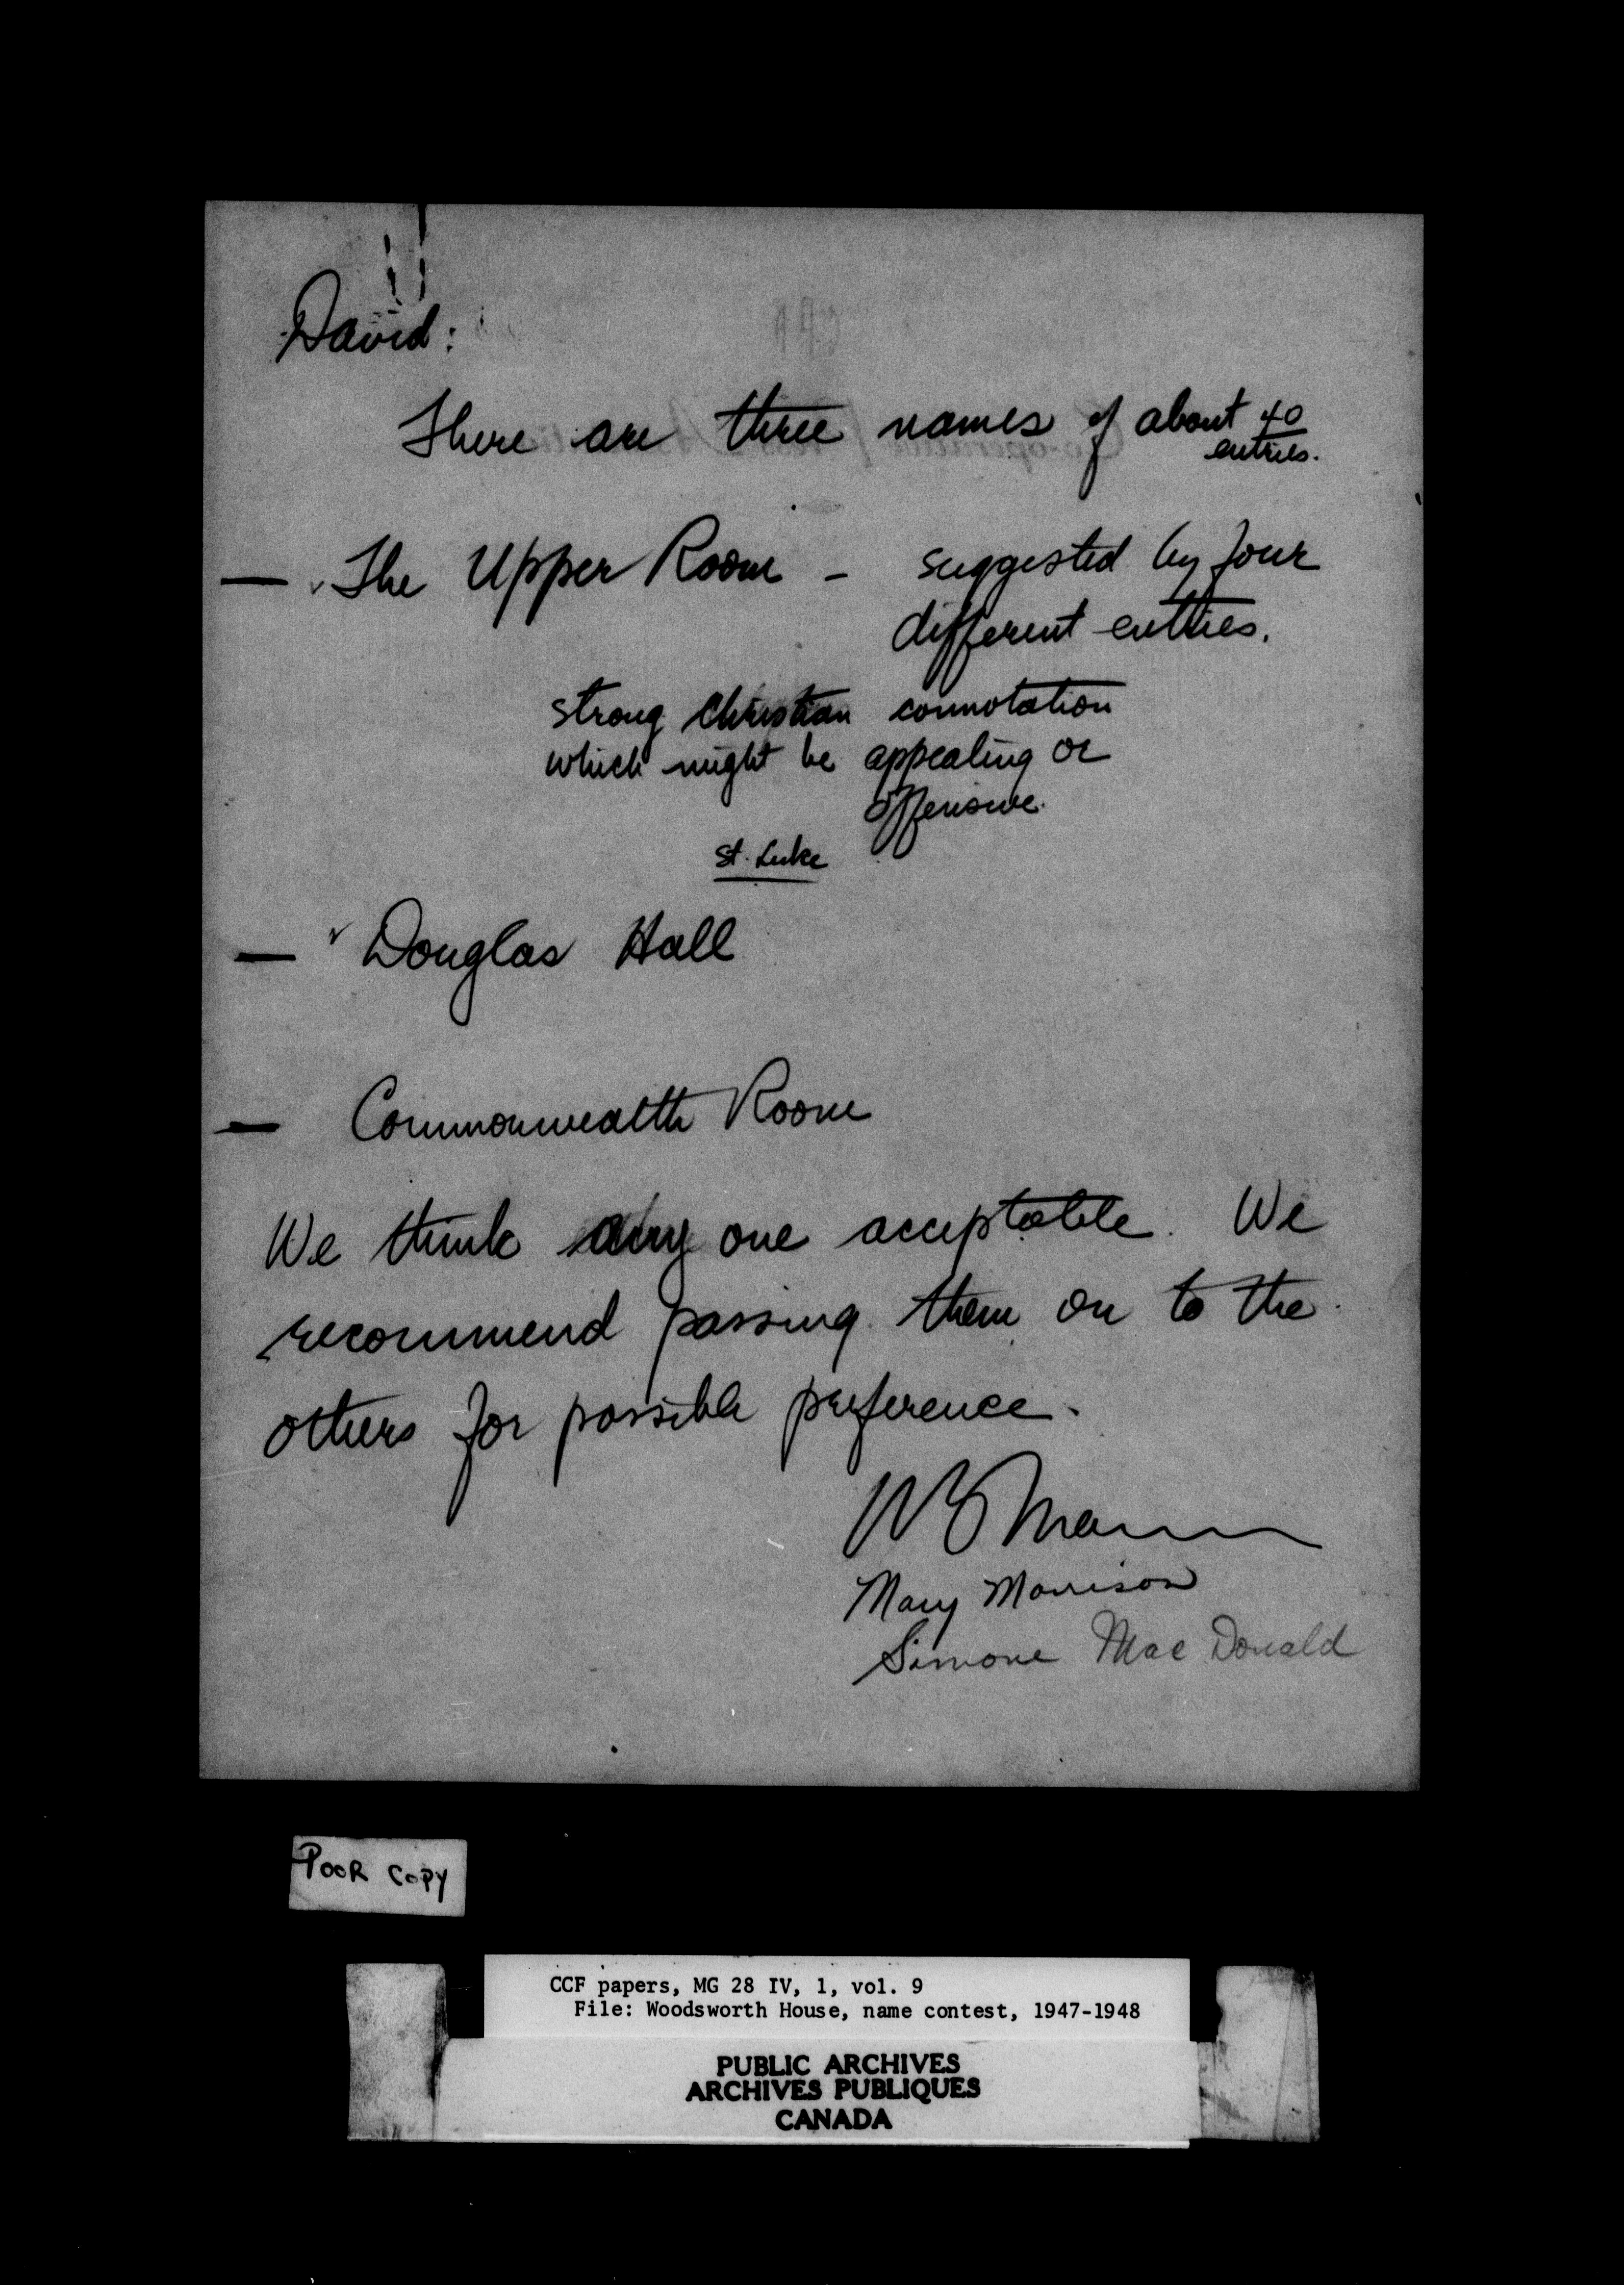 David:
There are three names of about 40
entries.
— The Upper Room - suggested by four
different entries.
strong Christian connotation
which might be appealing or
offensive.
St. Luke
— Douglas Hall
— Commonwealth Room
We think any one acceptable. We
recommend passing them on to the
others for possible preference.
Mary Morrison
Simone MacDonald
POOR COPY
CCF papers, MG 28 IV, 1, vol. 9
File: Woodsworth House, name contest, 1947-1948
PUBLIC ARCHIVES
ARCHIVES PUBLIQUES
CANADA